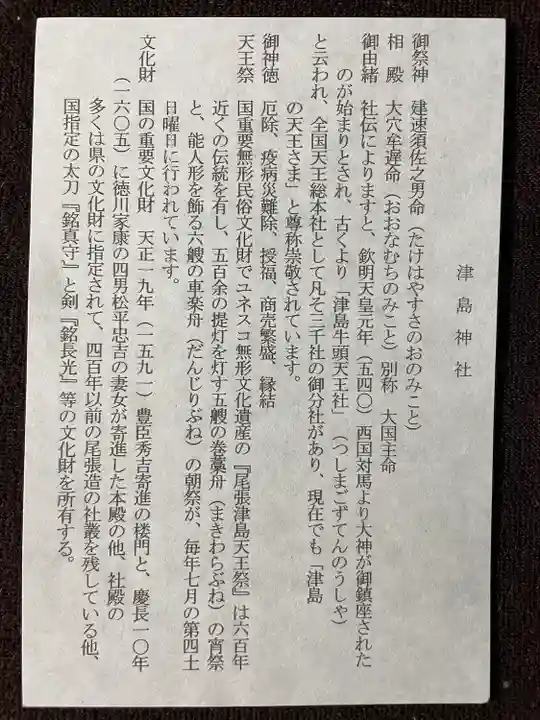 津島神社
御祭神　建速須佐之男命（たけはやすさのおのみこと）
相　殿　大穴牟遅命（おおなむちのみこと）別称　大国主命
御由緒　社伝によりますと、欽明天皇元年（五四〇）西国対馬より大神が御鎮座された
のが始まりとされ、古くより「津島牛頭天王社」（つしまごずてんのうしゃ）
と云われ、全国天王総本社として凡そ三千社の御分社があり、現在でも「津島
の天王さま」と尊称崇敬されています。
御神徳　厄除、疫病災難除、授福、商売繁盛、縁結
天王祭　国重要無形民俗文化財でユネスコ無形文化遺産の『尾張津島天王祭』は六百年
近くの伝統を有し、五百余の提灯を灯す五艘の巻藁舟（まきわらぶね）の宵祭
と、能人形を飾る六艘の車楽舟（だんじりぶね）の朝祭が、毎年七月の第四土
日曜日に行われています。
文化財　国の重要文化財　天正一九年（一五九一）豊臣秀吉寄進の楼門と、慶長一〇年
（一六〇五）に徳川家康の四男松平忠吉の妻女が寄進した本殿の他、社殿の
多くは県の文化財に指定されて、四百年以前の尾張造の社叢を残している他、
国指定の太刀『銘真守』と剣『銘長光』等の文化財を所有する。